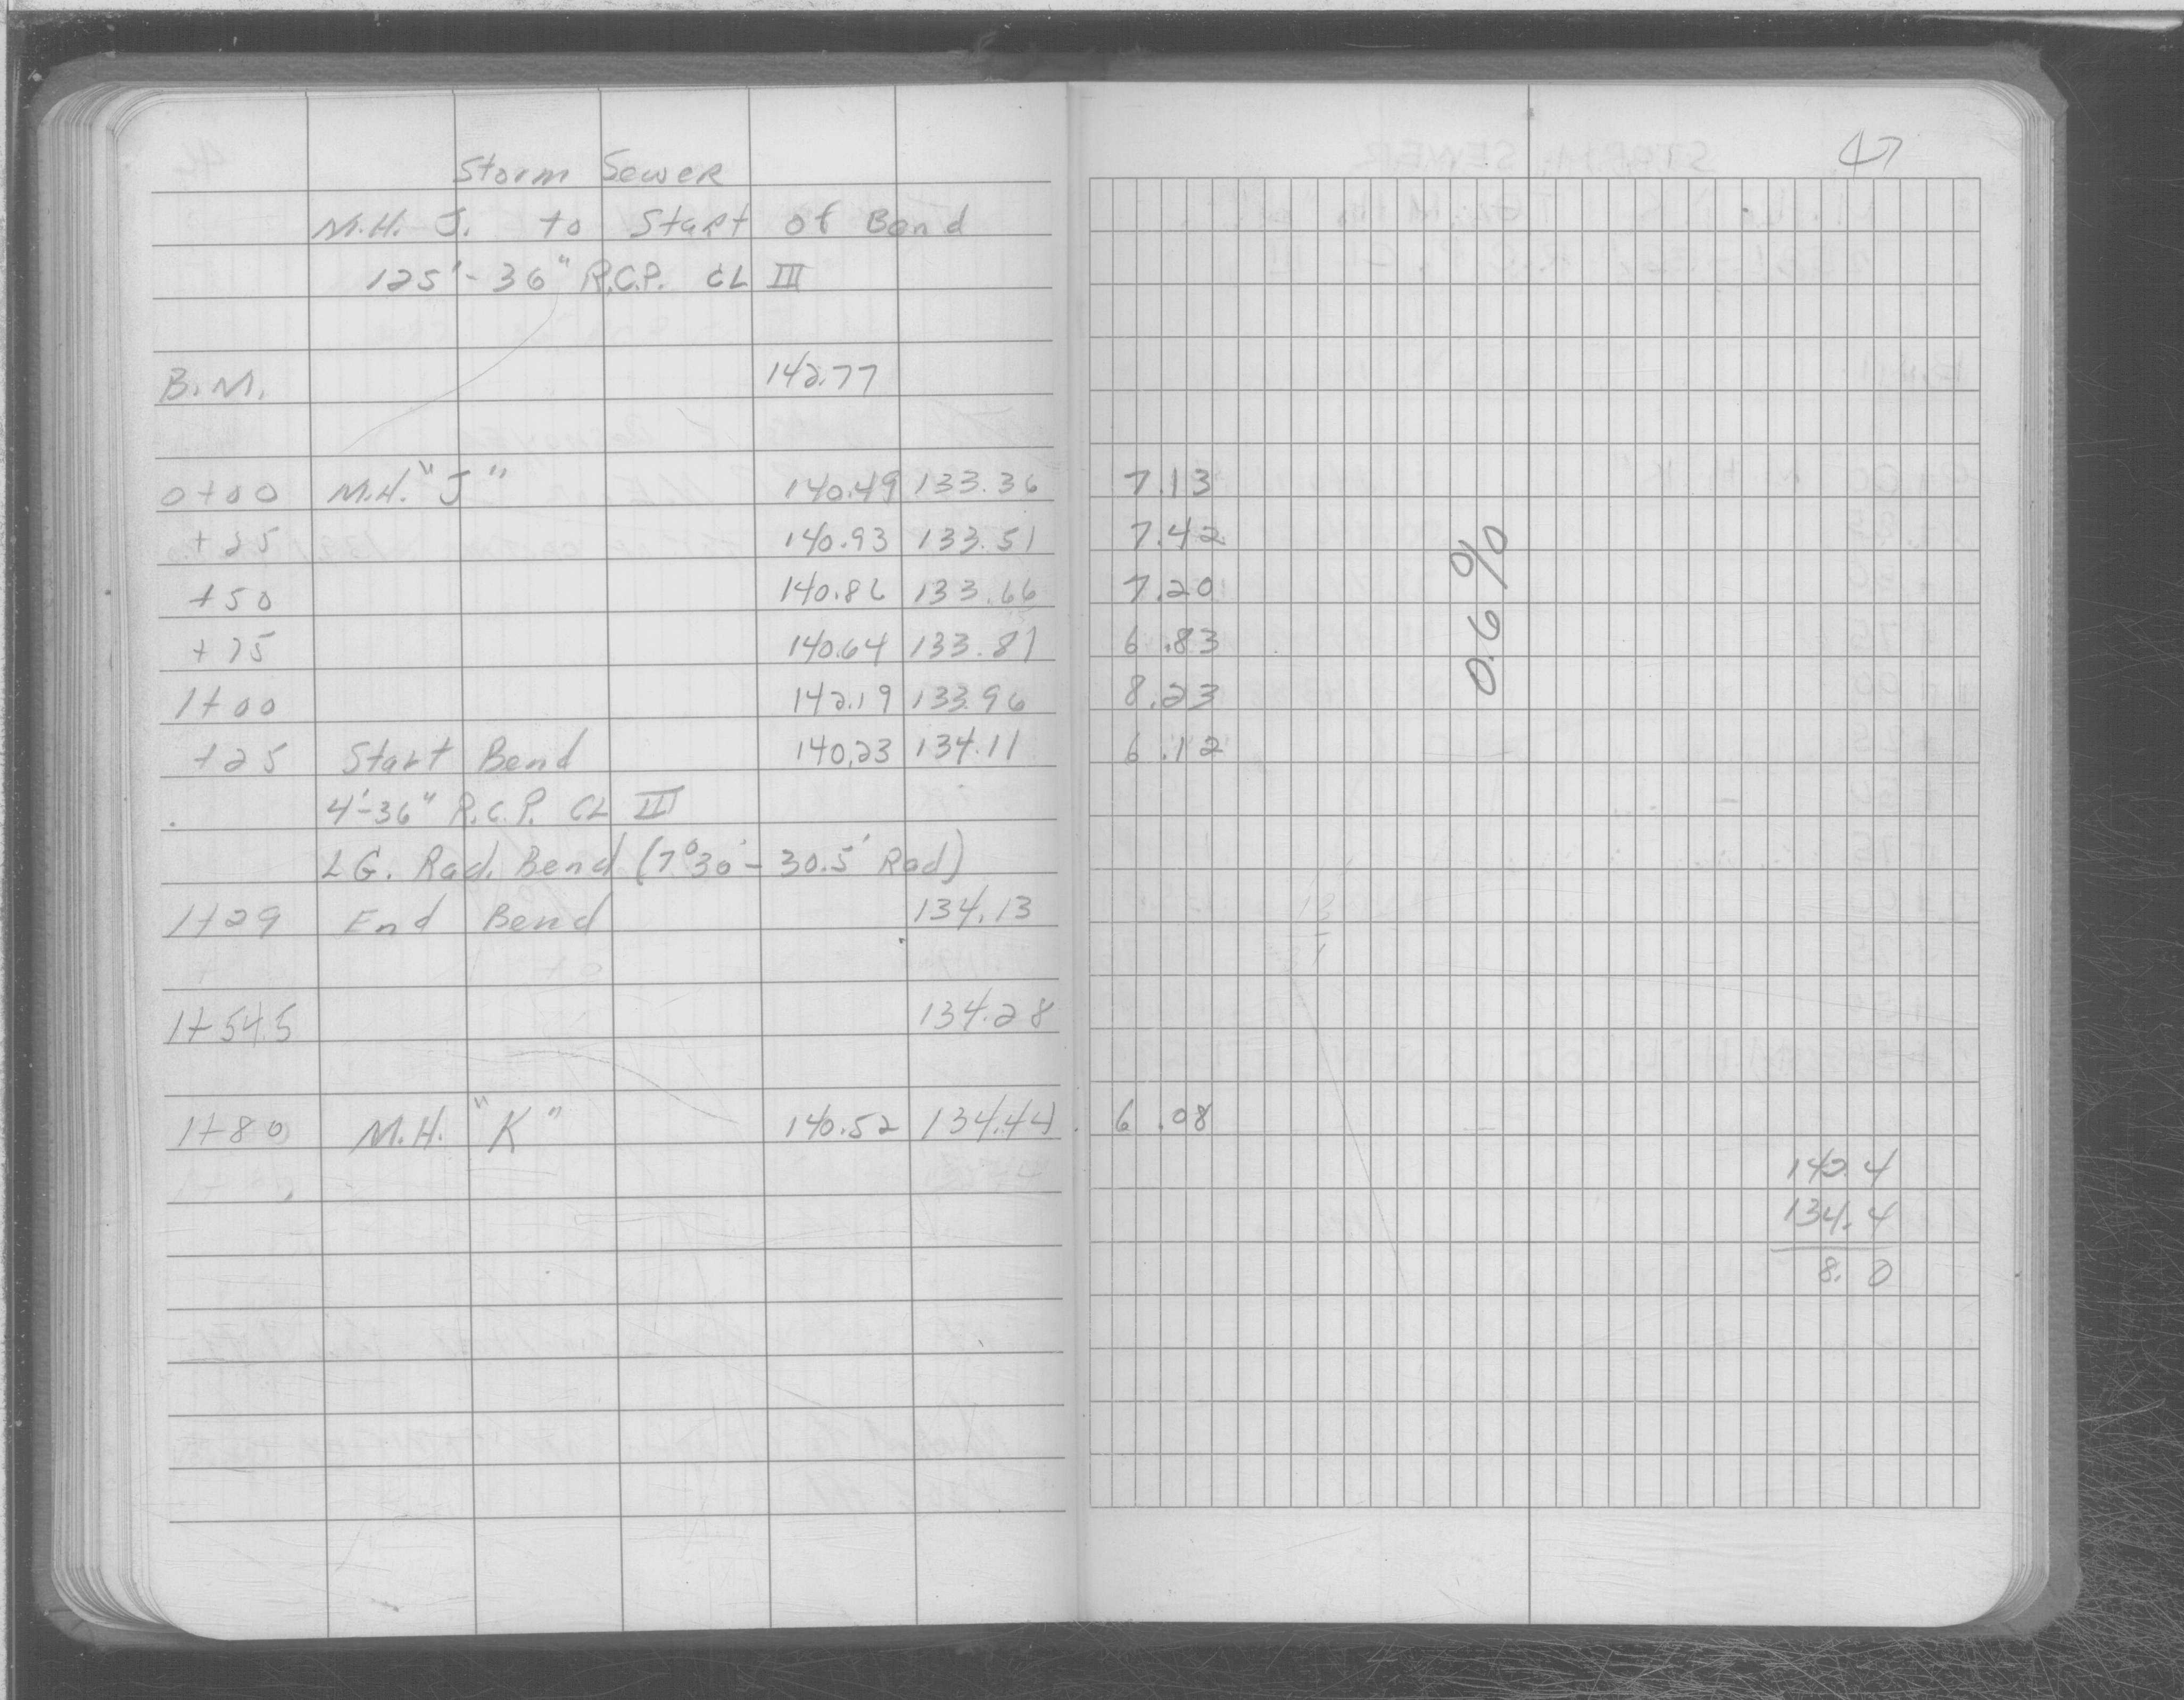 Storm Sewer
M.H. J. to Start of Bend
125'-36" R.C.P. CL III
B.M. 142.77
0+00 M.H. "J" 140.49 133.36
+25 140.93 133.51
+50 140.86 133.66
+75 140.64 133.81
1+00 142.19 133.96
+25 Start Bend 140.23 134.11
4'-36" R.C.P. CL III
LG. Rad. Bend (7°30' - 30.5' Rad)
1+29 End Bend 134.13
1+54.5 134.28
1+80 M.H. "K" 140.52 134.44
47
7.13
7.42
7.20
6.83
8.23
6.12
0.6%
6.08
142.4
134.4
8.0